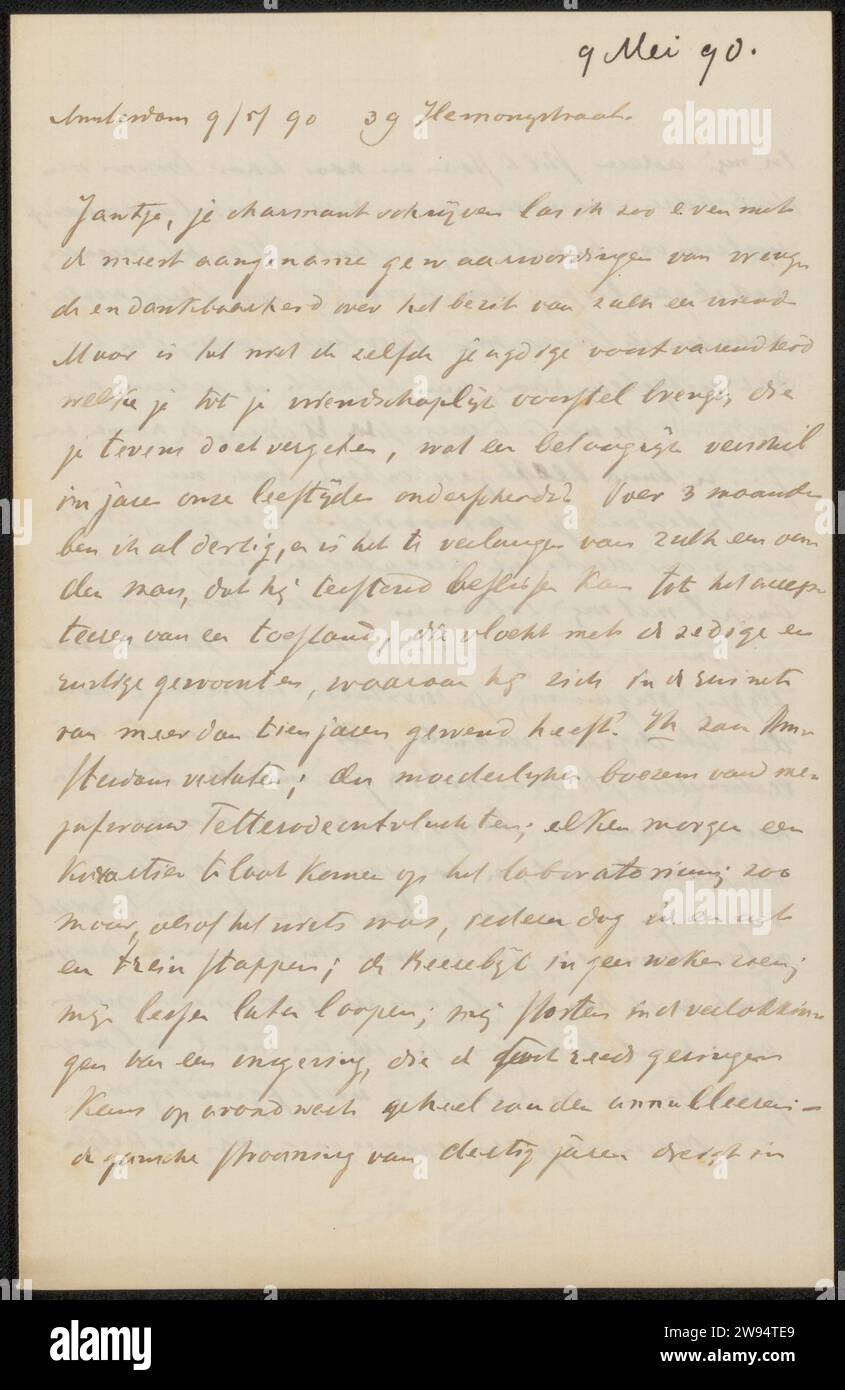 9 Mei 90.
Amsterdam 9/5/90 39 Hemonystraat.
Jantje, je charmant schrijven las ik zoo even met
de meest aangename gewaarwordingen van vreug
de en dankbaarheid over het bezit van zulk een vriend
Maar is het niet de zelfde jeugdige voortvarendheid
welke je tot je vriendschaplijk voorstel brengt, die
je tevens doet vergeten, wat een belangrijk verschil
in jaren onze leeftijden onderscheidt. Over 3 maanden
ben ik al dertig, en is het te verlangen van zulk een
den man, dat hij besluiten kan tot het accep
teeren van een toestand, die vloekt met de zedige en
rustige gewoonten, waaraan hij zich in de
van meer dan tien jaren gewend heeft? Ik zou Am-
sterdam verlaten; den moederlijken boezem van me-
juffrouw Tetterode ontvluchten; elken morgen een
kwartier te laat komen op het laboratorium; zoo
maar, alsof het niets was, iederen dag in en uit
en trein stappen; de in geen weken zien;
mijn lessen laten loopen; mij storten in de verlokkin-
gen van een omgeving, die de reeds geringe
kans op avondwerk geheel zouden annulleeren; –
de gansche van dertig jaren dreigt in
alamy
Image ID: 2W94TE9
www.alamy.com